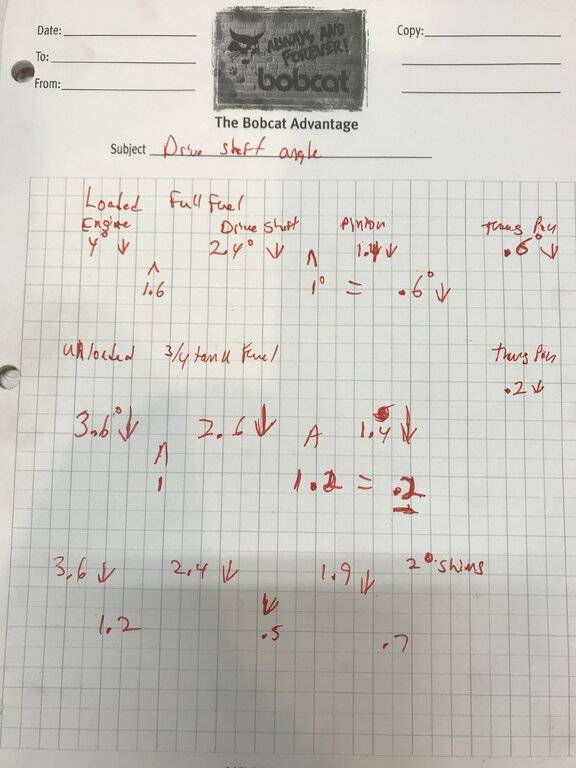 Date:
To:
From:
ALWAYS AND FOREVER!
bobcat
Copy:
The Bobcat Advantage
Subject Drive shaft angle
Loaded Full Fuel
Engine Drive shaft Pinion Trans Pan
4° ↓ 2.4° ↓ ↓ .6° ↓
^ ^
1.6 1° = .6° ↓
unloaded 3/4 tank Fuel Trans Pan
.2 ↓
3.6° ↓ 2.6 ↓ 1.4 ↓
^ ^
1 1.2 = .2
3.6 ↓ 2.4 ↓ 1.9 ↓ 2° shims
↓
1.2 .5 .7